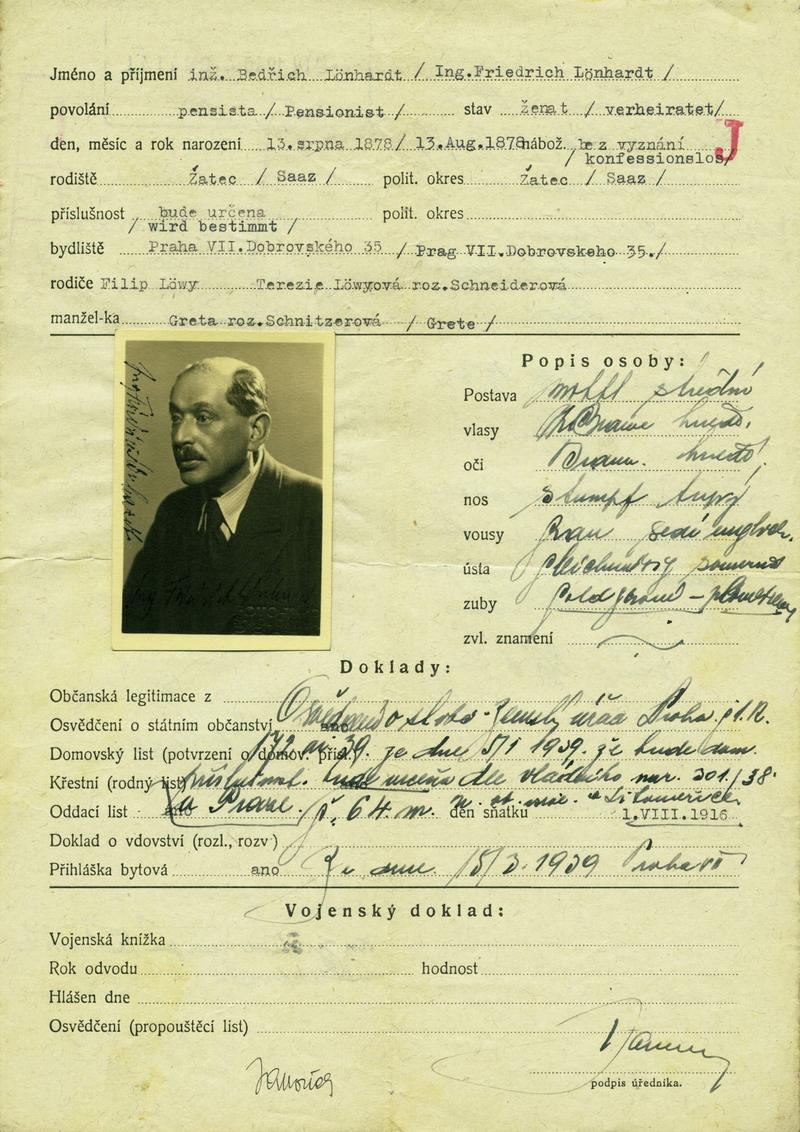 Jméno a příjmení inž. Bedřich Lönhardt / Ing.Friedrich Lönhardt /
povolání pensista / Pensionist / stav ženat / verheiratet/
den, měsíc a rok narození 13.srpna 1878/ 13.Aug.1878 nábož. bez vyznání J
/ konfessionslos/
rodiště Žatec / Saaz / polit. okres Žatec / Saaz /
příslušnost bude určena polit. okres
/ wird bestimmt /
bydliště Praha VII.Dobrovského 35 / Prag VII.Dobrovskeho 35./
rodiče Filip Löwy Terezie Löwyová roz.Schneiderová
manžel-ka Greta roz.Schnitzerová / Grete /
Popis osoby:
Postava mittl střední
vlasy Braune hnědé,
oči Braun. hnědé!
nos stumpf tupý
vousy Grau šedí
ústa
zuby Gold
zvl. znamení
Doklady:
Občanská legitimace z
Osvědčení o státním občanství Osvědčení o státo. Zemský úřad Praha.
Domovský list (potvrzení o domov. přísl.) 172 ai 39. ze dne 5/I 1939. že bude dom.
Křestní (rodný list) příslušnost. bude určena dle vládního nar. 301/38
Oddací list ano v Praze. č. 64. den sňatku 1.VIII.1916
Doklad o vdovství (rozl., rozv)
Přihláška bytová ano Ze dne 15/3. 1939 Praha
Vojenský doklad:
Vojenská knížka
Rok odvodu hodnost
Hlášen dne
Osvědčení (propouštěcí list)
podpis úředníka.